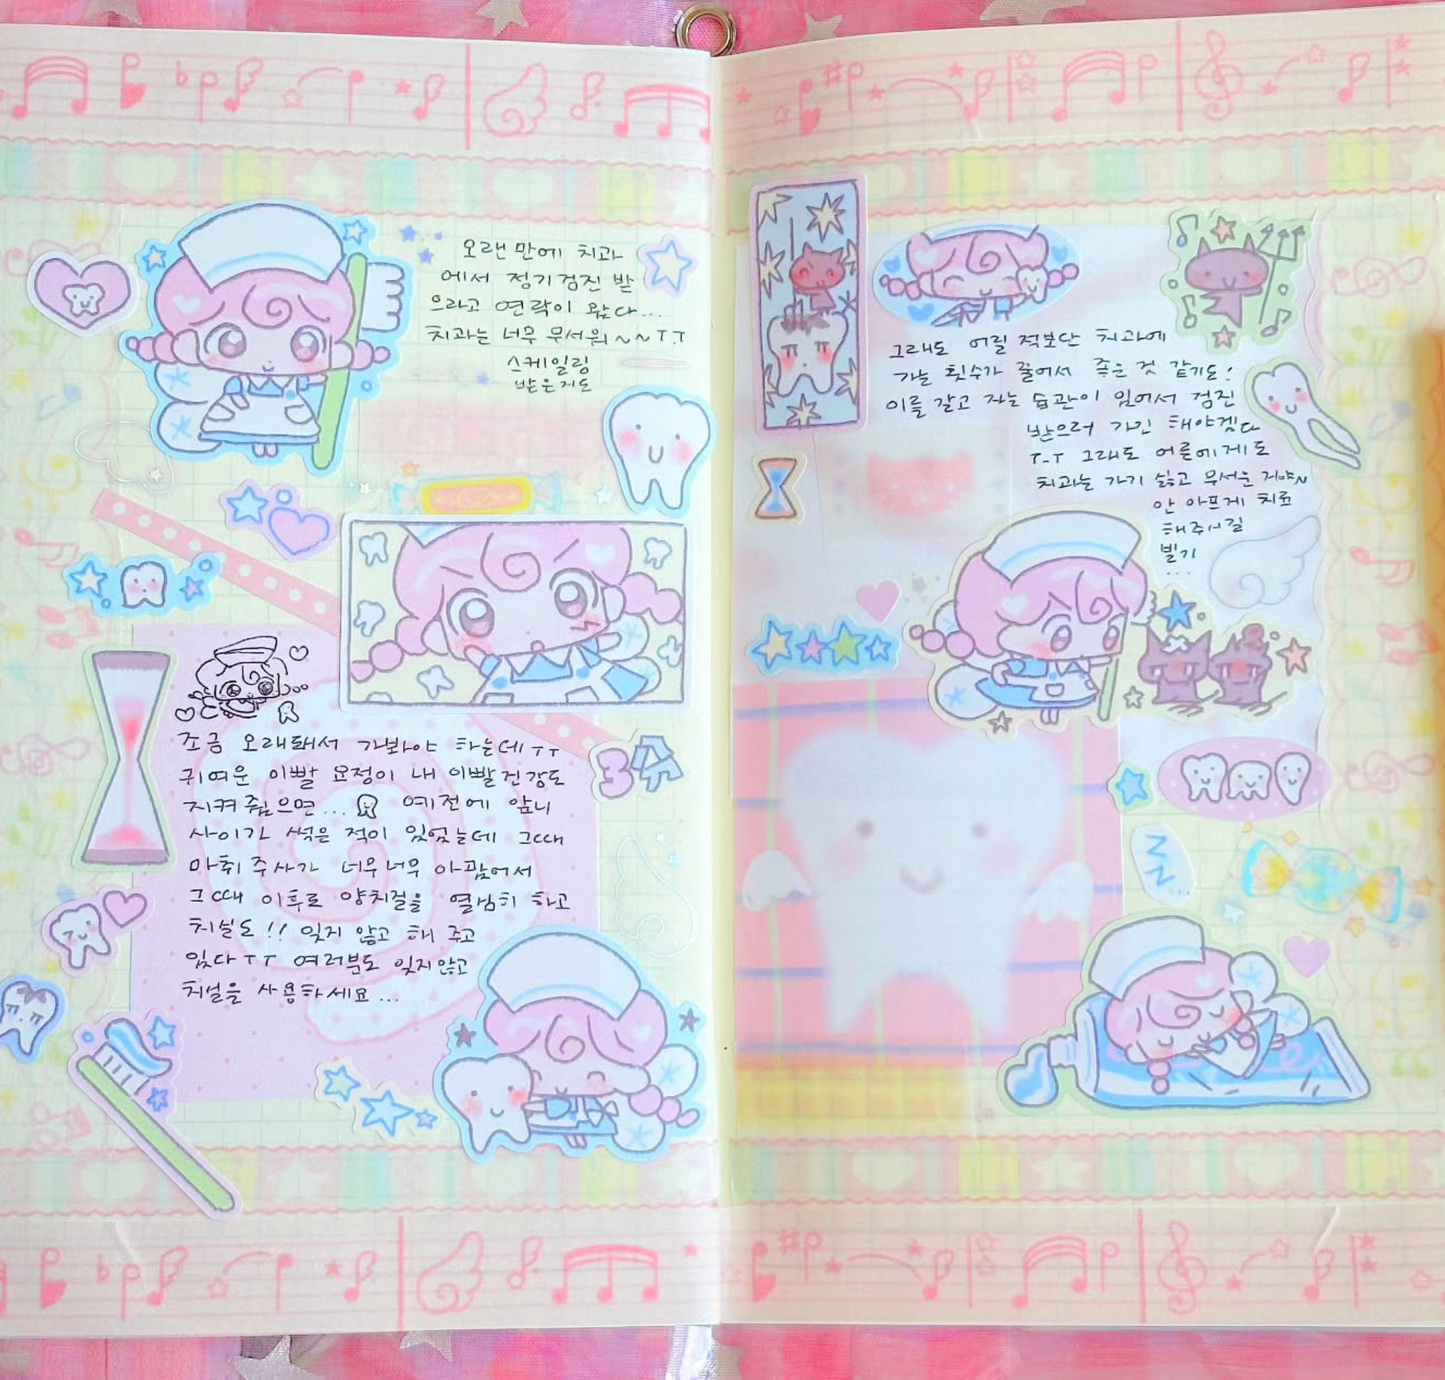 오랜만에 치과
에서 정기검진 받
으라고 연락이 왔다...
치과는 너무 무서워~~ㅜ.ㅜ
스케일링
받은지도
조금 오래돼서 가봐야 하는데 ㅜㅜ
귀여운 이빨 요정이 내 이빨건강도
지켜줬으면... 예전에 앞니
사이가 썩은 적이 있었는데 그때
마취주사가 너무너무 아팠어서
그때 이후로 양치질을 열심히 하고
치실도!! 잊지 않고 해 주고
있다ㅜㅜ 여러분도 잊지않고
치실을 사용하세요...
그래도 어릴 적보단 치과에
가는 횟수가 줄어서 좋은 것 같기도!
이를 갈고 자는 습관이 있어서 검진
받으러 가긴 해야겠다
ㅜ_ㅜ 그래도 어른에게도
치과는 가기 싫고 무서운 거야~
안 아프게 치료
해주시길
빌기
...